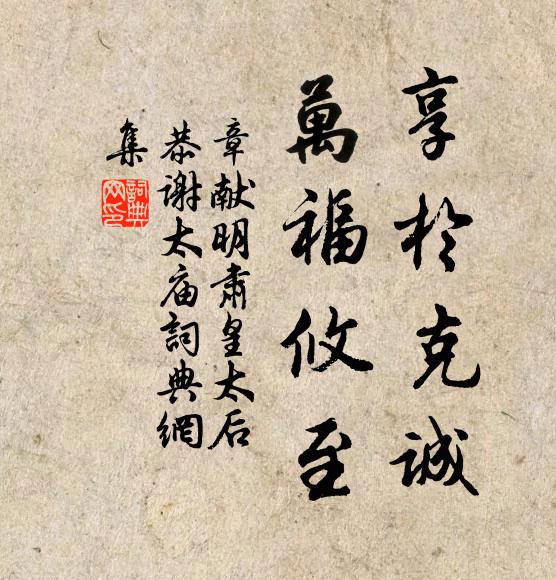 享於克诚
萬福攸至
章献明肃皇太后
恭谢太庙詞典網
集
詞典
网印